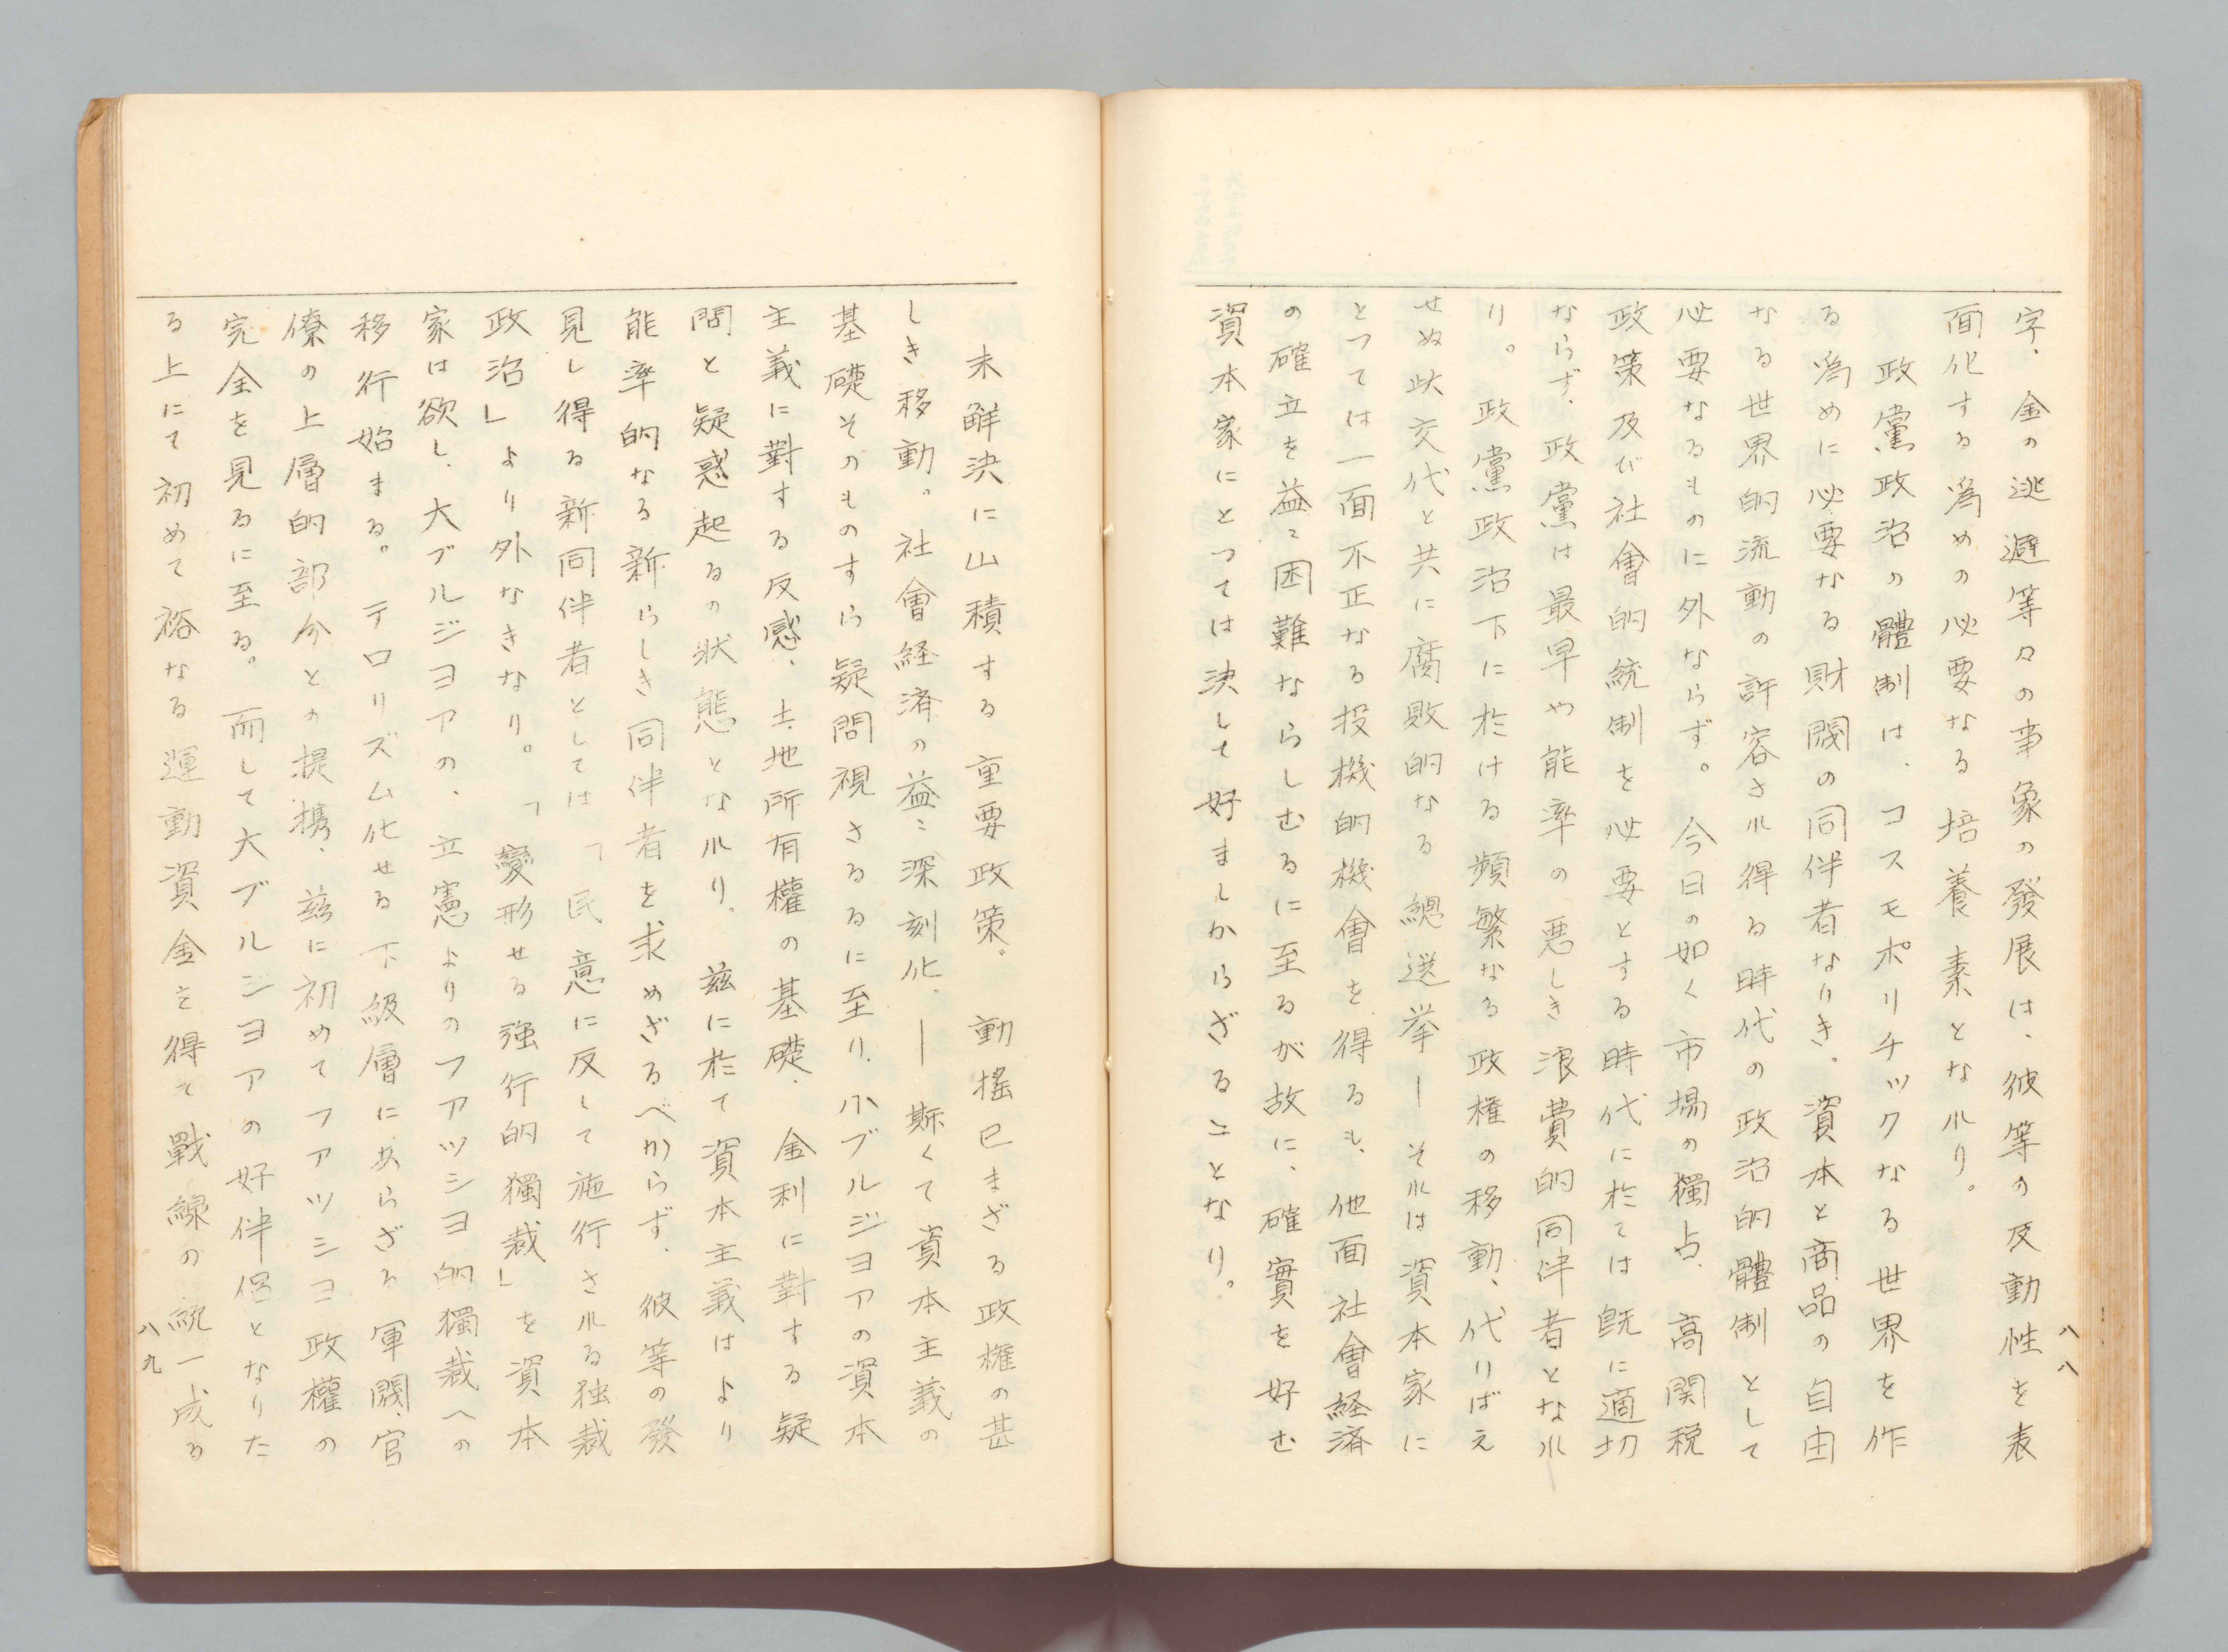 字、金の逃避等々の事象の發展は、彼等の反動性を表
面化する爲めの必要なる培養素となれり。
政黨政治の體制は、コスモポリチックなる世界を作
る爲めに必要なる財閥の同伴者なりき。資本と商品の自由
なる世界的流動の許容され得る時代の政治的體制として
必要なるものに外ならず。今日の如く市場の獨占、高関税
政策及び社會的統制を必要とする時代に於ては既に適切
ならず、政黨は最早や能率の悪しき浪費的同伴者となれ
り。政黨政治下に於ける頻繁なる政権の移動、代りばえ
せぬ政交代と共に腐敗的なる總選挙ーそれは資本家に
とつては一面不正なる投機的機會を得るも、他面社會経済
の確立を益〻困難ならしむるに至るが故に、確實を好む
資本家にとつては決して好ましからざることなり。
八八
未解決に山積する重要政策。動搖已まざる政権の甚
しき移動。社會経済の益〻深刻化。ー斯くて資本主義の
基礎そのものすら疑問視さるるに至り、小ブルジヨアの資本
主義に對する反感、土地所有權の基礎、金利に對する疑
問と疑惑起るの状態となれり。茲に於て資本主義はより
能率的なる新らしき同伴者を求めざるべからず、彼等の發
見し得る新同伴者としては「民意に反して施行される独裁
政治」より外なきなり。「變形せる強行的獨裁」を資本
家は欲し、大ブルジヨアの、立憲よりのフアツシヨ的獨裁への
移行始まる。テロリズム化せる下級層にあらざる軍閥、官
僚の上層的部分との提携、茲に初めてフアツシヨ政權の
完全を見るに至る。而して大ブルジヨアの好伴侶となりた
る上にて初めて裕なる運動資金を得て戰線の統一成る
八九